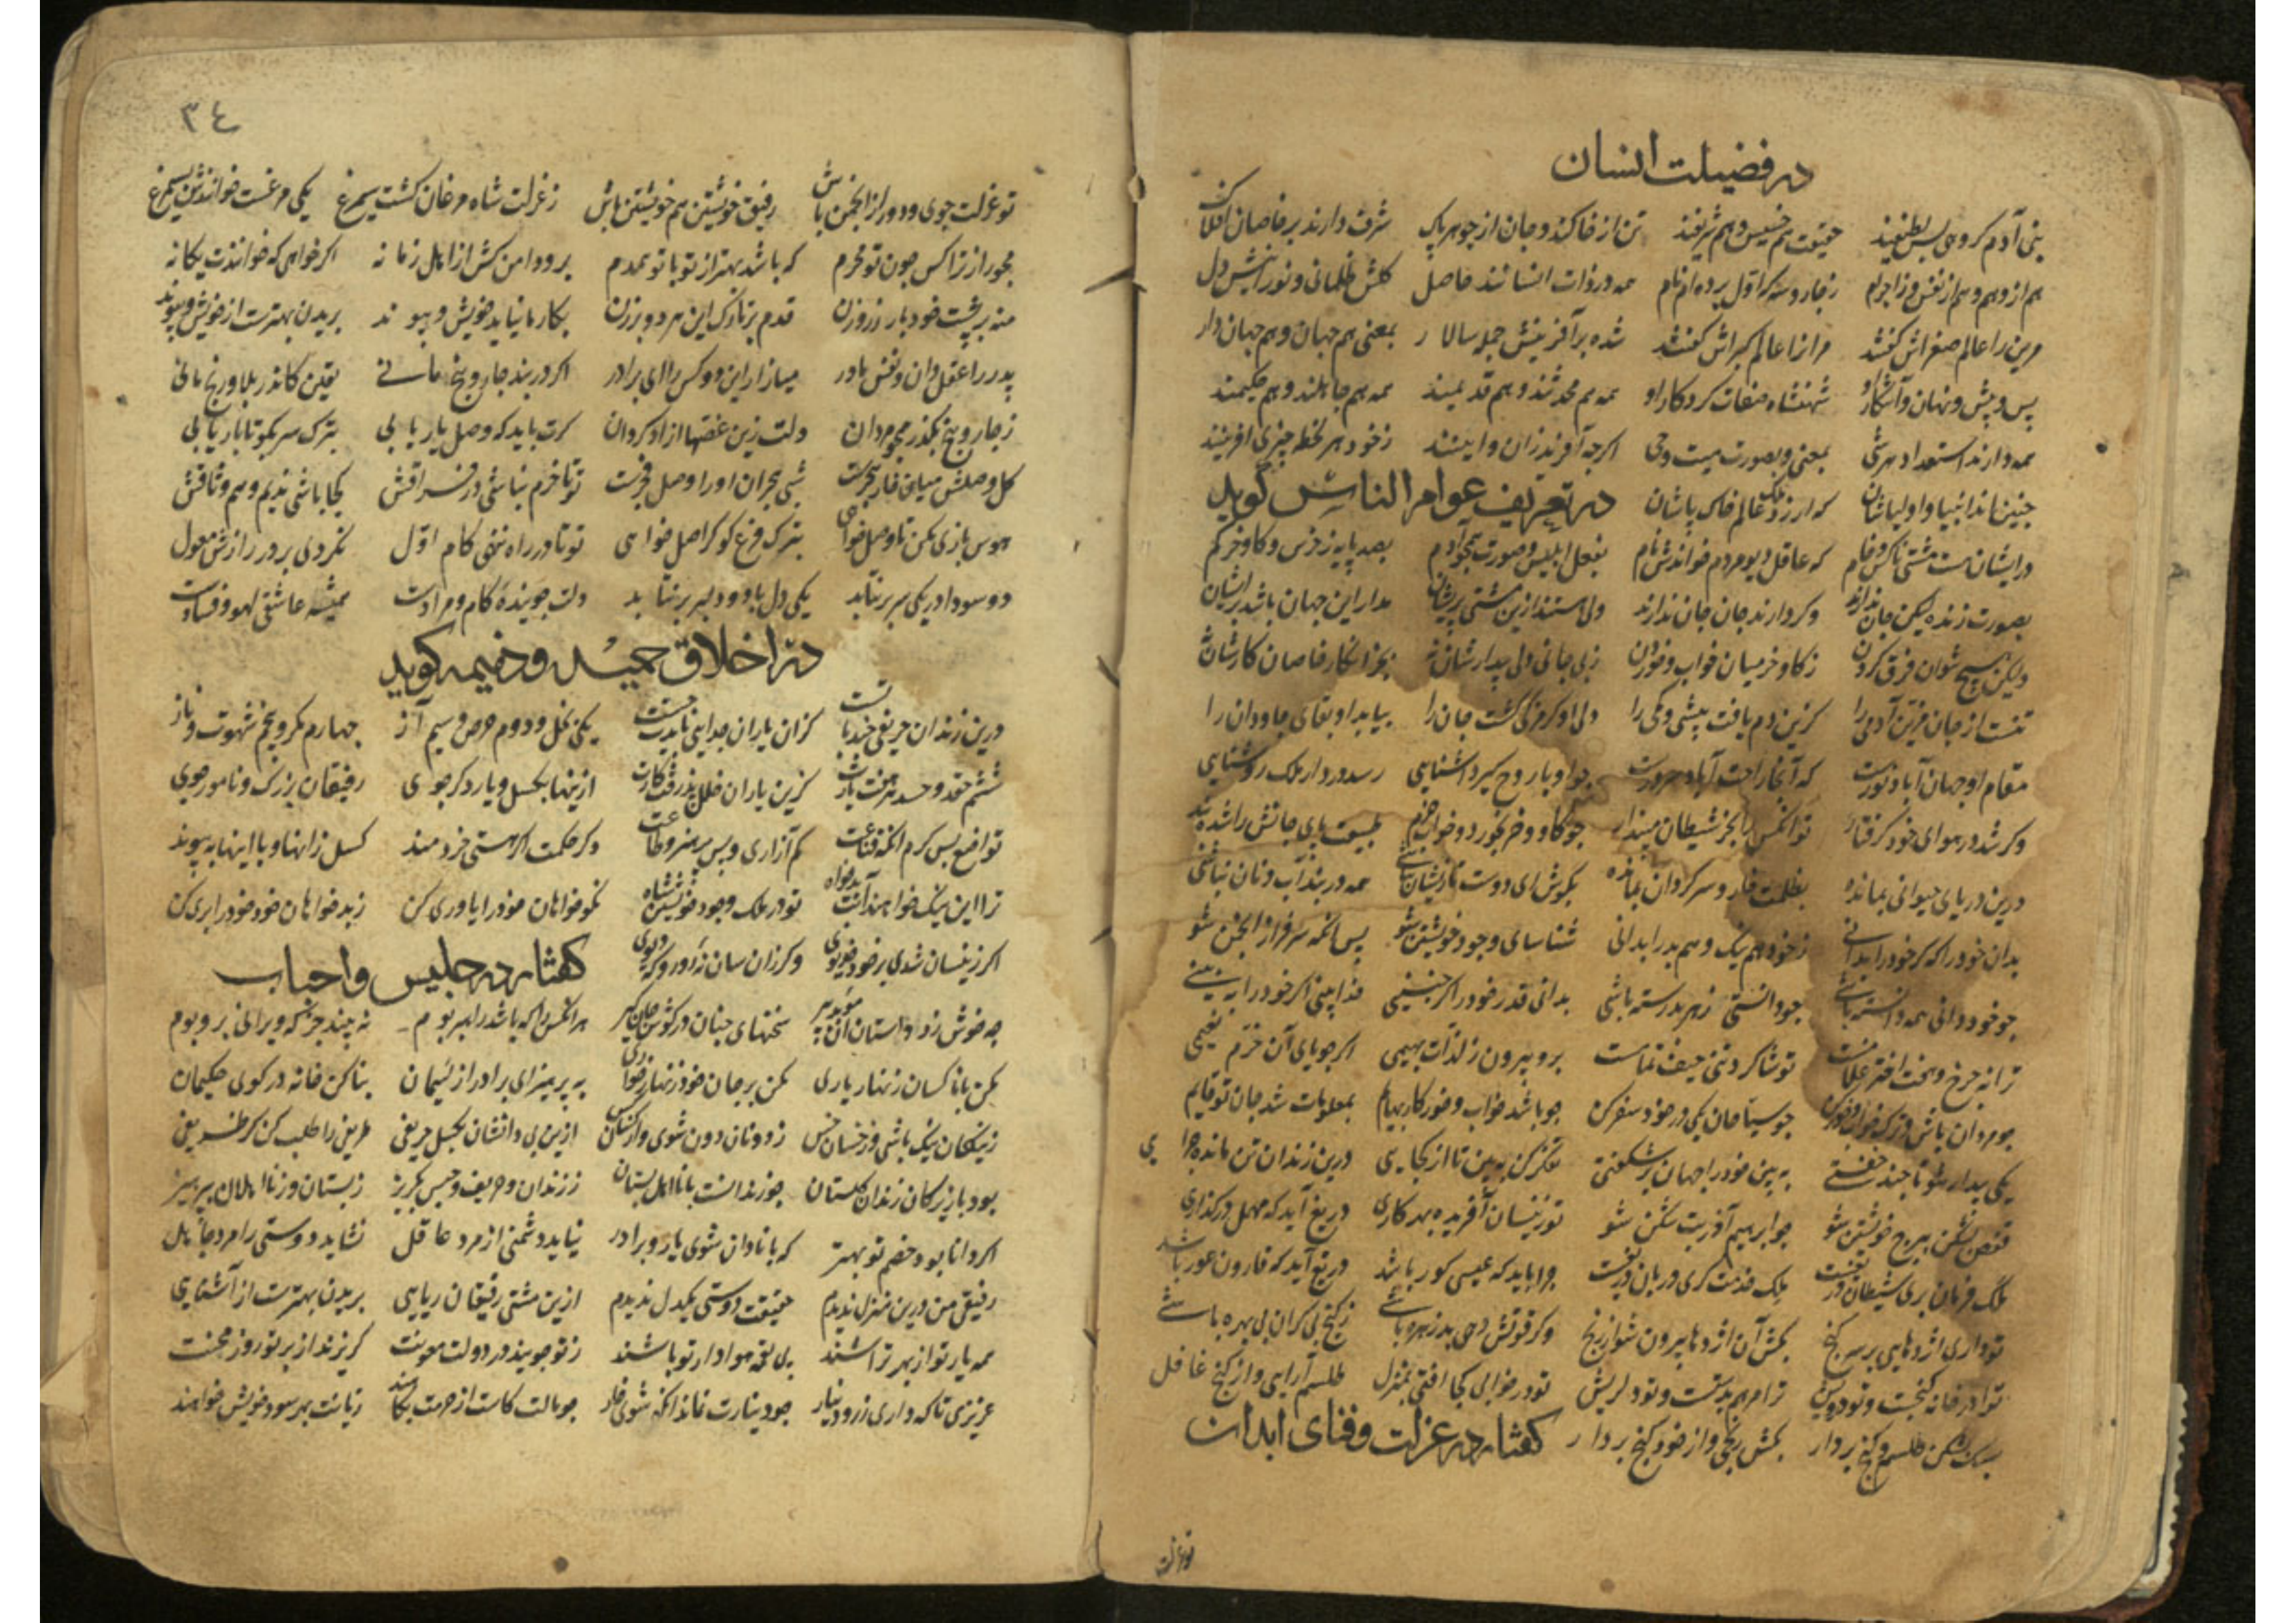 در فضیلت انسان
بنی آدم کروهی بس لطیفند حقیقت هم خسیس و هم شریفند تن از خاکند و جان از جوهر پاک شرف دارند بر خاصان افلاک
هم از وهم و هم از نفس و ز اجرام همه در ذات انسانند حاصل کلش ظلمانی و نورانیش دل
مرین را عالم صغراش کفتند مرانرا عالم کبراش کفتند شده بر آفرینش جمله سالار بمعنی هم جهان و هم جهان دار
پس و پیش و نهان و آشکار او شهنشاه صفات کردکار او همه هم محدثند و هم قدیمند همه هم جاهلند و هم حکیمند
همه دارند استعداد هر شی بمعنی و بصورت میت و حی اکرچه آفریدن را نه اینند ز خود هر لحظه چیزی آفرینند
چنین اند انبیا و اولیاشان که ارزد ملک عالم خاک پاشان
در تعریف عوام الناس کوید
ور ایشان هست مشتی ناکس و خام که عاقل دیو مردم خواندش نام بفعل ابلیس و صورت همچو آدم بصد پایه ز خرس و کاو و خر کم
بصورت زنده لیکن جان ندارند وکر دارند جان جانان ندارند ولی هستند ازین مشتی پریشان مدار این جهان باشد بر ایشان
ولیکن هیچ نتوان فرق کردن ز کاو و خر میان خواب و خوردن بجز انکار خاصان کارشان نه
تنست از جان مزین آدمی را کزین دم یافت بیشی و کمی را ولی او کر مزکی کشت جان را بیابد او بقای جاودان را
مقام او جهان آباد نورست که آنجا راحت آباد سرورست چو او با روح کیرد آشنایی رسد در دار ملک روشنایی
وکر شد در هوای خود کرفتار تو آنکس را بجز شیطان مپندار چو کاو و خر بخورد و خواب خرسند طبیعت پای جانش را شده بند
درین دریای حیوانی بمانده بظلمت خار و سرکردان بمانده بکوش ای دوست تا زیشان نباشی همه در بند آب و نان نباشی
بدان خود را که کر خود را بدانی ز خود هم نیک و هم بد را بدانی شناسای وجود خویشتن شو پس آنکه سرفراز انجمن شو
چو خود دانی همه دانسته باشی چو دانستی ز هر بد رسته باشی بدانی قدر خود اکر چنینی خدا بینی اکر خود را به بینی
ترا نه چرخ و هفت اختر غلامست تو شاکرد تنی حیف تمامست برو بیرون ز لذات بهیمی اکر جویای آن خرم نعیمی
چو مردان باش و ترک خواب و خور کن چو سیاحان یکی در خود سفر کن چو باشد خواب و خور کار بهایم بمعلومات شد جان تو قایم
یکی بیدار شو تا چند خفتی به بین خود را جهان بر شکفتی تفکر کن به بین تا از کجایی درین زندان تن مانده چرایی
قفص بشکن ببرج خویشتن شو چو ابراهیم آزر بت شکن شو تو زینسان آفریده بهر کاری دریغ آید که مهمل در کذاری
ملک فرمان بری شیطان دریغست ملک خدمت کری دربان دریغست چرا باید که عیسی کور باشد دریغ آید که قارون عور باشد
تو داری اژدهایی بر سر کنج بکش آن اژدها بیرون شو از رنج وکر قوتش دهی بد زهره باشی ز کنج بی کران بی بهره باشی
ترا در خانه کنجست و تو درویش ترا مرهم بدستست و تو دلریش تو در خوابی کجا افتی بمنزل طلسم آرایی و از کنج غافل
سبک بشکن طلسم و کنج بردار بکش رنجی و از خود رنج بردار
کفتار در عزلت و فنای ابدان
تو عزلت
٣٤
تو عزلت جوی و دور از انجمن باش رفیق خویشتن هم خویشتن باش ز عزلت شاه مرغان کشت سیمرغ یکی مرغست خوانندش سی مرغ
مجو راز از کس چون تو محرم که باشد بهتر از تو با تو همدم برو دامن کش از اهل زمانه اکر خواهی که خوانندت یکانه
منه بر پشت خود بار زر و زن قدم بر تارک این هر دو بر زن بکار ما نیاید خویش و پیوند بریدن بهترست از خویش و پیوند
پدر را عقل دان و نفس مادر میازار این دو کس را ای برادر اکر در بند چار و پنج مانی یقین کاندر بلا و رنج مانی
ز چار و پنج بکذر همچو مردان دلت زین غصها آزاد کردان کرت باید که وصل یار یابی بترک سر بکو تا بار یابی
کل وصلش میان خار هجرست شب هجران او را وصل فجرست تو تا خرم نباشی در فراقش کجا باشی ندیم و هم وثاقش
هوس بازی مکن تا وصل خواهی بترک فرع کو کر اصل خواهی تو تا در راه ننهی کام اول نکردی بر در رازش معول
دو سودا در یکی سر بر نتابد یکی دل با دو دلبر بر نتابد دلت جوینده کام و مرادست همیشه عاشق لهو و فسادست
در اخلاق حمیده و ذمیمه کوید
درین زندان حریفی چند با تست کزان یاران جدایی بایدت جست یکی بخل و دوم حرص و سیم آز چهارم مکر و پنجم شهوت و ناز
ششم حقد و حسد هر هفت یارت کزین یاران خلل پذرفت کارت ازینها بکسل و یار دکر جوی رفیقان بزرک و نامور جوی
تواضع پس کرم آنکه قناعت کم آزاری و پس پرهیز و طاعت دکر حکمت اکر هستی خردمند کسل زانها و با اینها بپیوند
ترا این نیک خواهند آنت بدخواه تو در ملک وجود خویشتن شاه نکو خواهان خود را یاوری کن ز بد خواهان خود خود را بری کن
اکر زینسان شدی بر خود خدیوی وکر زان سان نه آور و که دیوی
کفتار در جلیس و احباب
چه خوش زد داستان آن موبد پیر سخنهای چنان در کوش جان کیر هر آنکس را که باشد راهبر بوم نه بیند جز که ویرانی بر و بوم
مکن با ناکسان زنهار یاری مکن بر جان خود زنهار خواری به پرهیز ای برادر از لئیمان بنا کن خانه در کوی حکیمان
ز نیکان نیک باشی وز خسان خس ز دونان دون شوی وز ناکسان کس ازین بی دانشان بکسل حریفی ظریفی را طلب کن کر ظریفی
بود با زیرکان زندان کلستان چو زندانست با نااهل بستان ز زندان و حریف و حبس مکریز ز بستان و ز نااهلان بپرهیز
اکر دانا بود خصم تو بهتر که با نادان شوی یار و برادر نیاید دشمنی از مرد عاقل نشاید دوستی را مرد جاهل
رفیقی من درین منزل ندیدم حقیقت دوستی یکدل ندیدم ازین مشتی رفیقان ریایی بریدن بهترست از آشنایی
همه یار تو از بهر تراشند پی لقمه هوادار تو باشند ز تو جویند در دولت معونت کریزند از بر تو روز محنت
عزیزی تا که داری زر و دینار چو دینارت نماند آنکه شوی خار چو مالت کاست از مهرت بکاهند زیانت بهر سود خویش خواهند